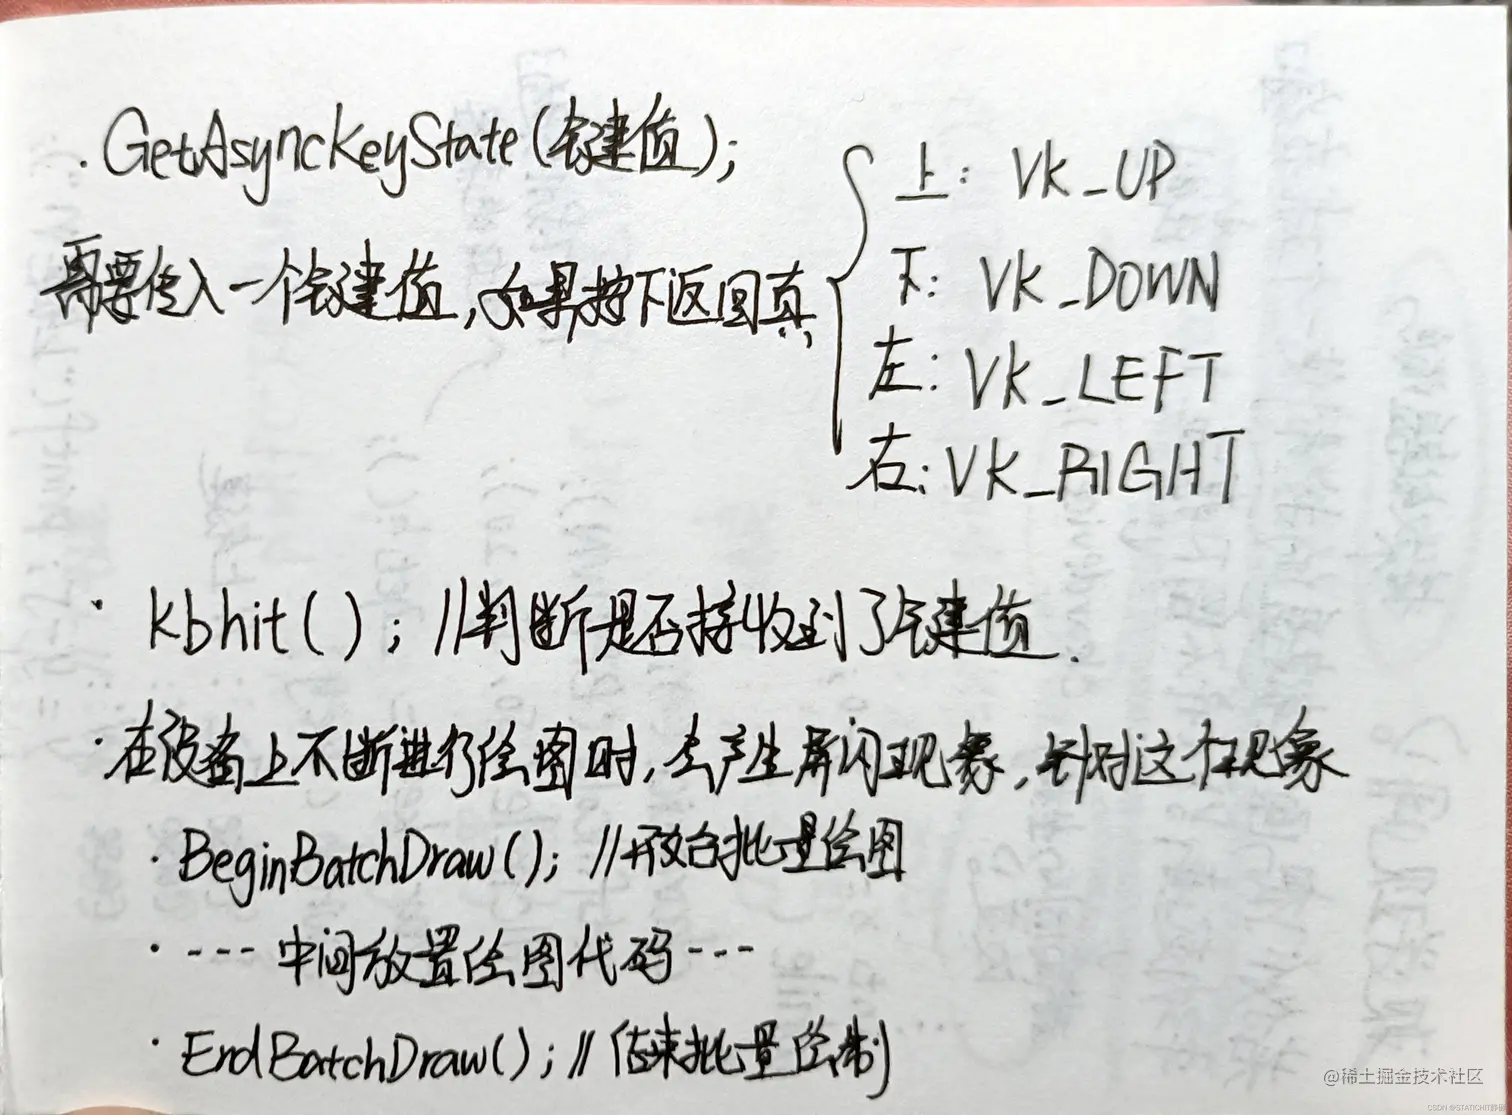 · GetAsyncKeyState(键值);
需要传入一个键值,如果按下返回真
上: VK_UP
下: VK_DOWN
左: VK_LEFT
右: VK_RIGHT
· kbhit(); //判断是否接收到了键值.
· 在设备上不断进行绘图时,会产生屏闪现象,针对这个现象
· BeginBatchDraw(); //开始批量绘图
· --- 中间放置绘图代码 ---
· EndBatchDraw(); //结束批量绘制
@稀土掘金技术社区